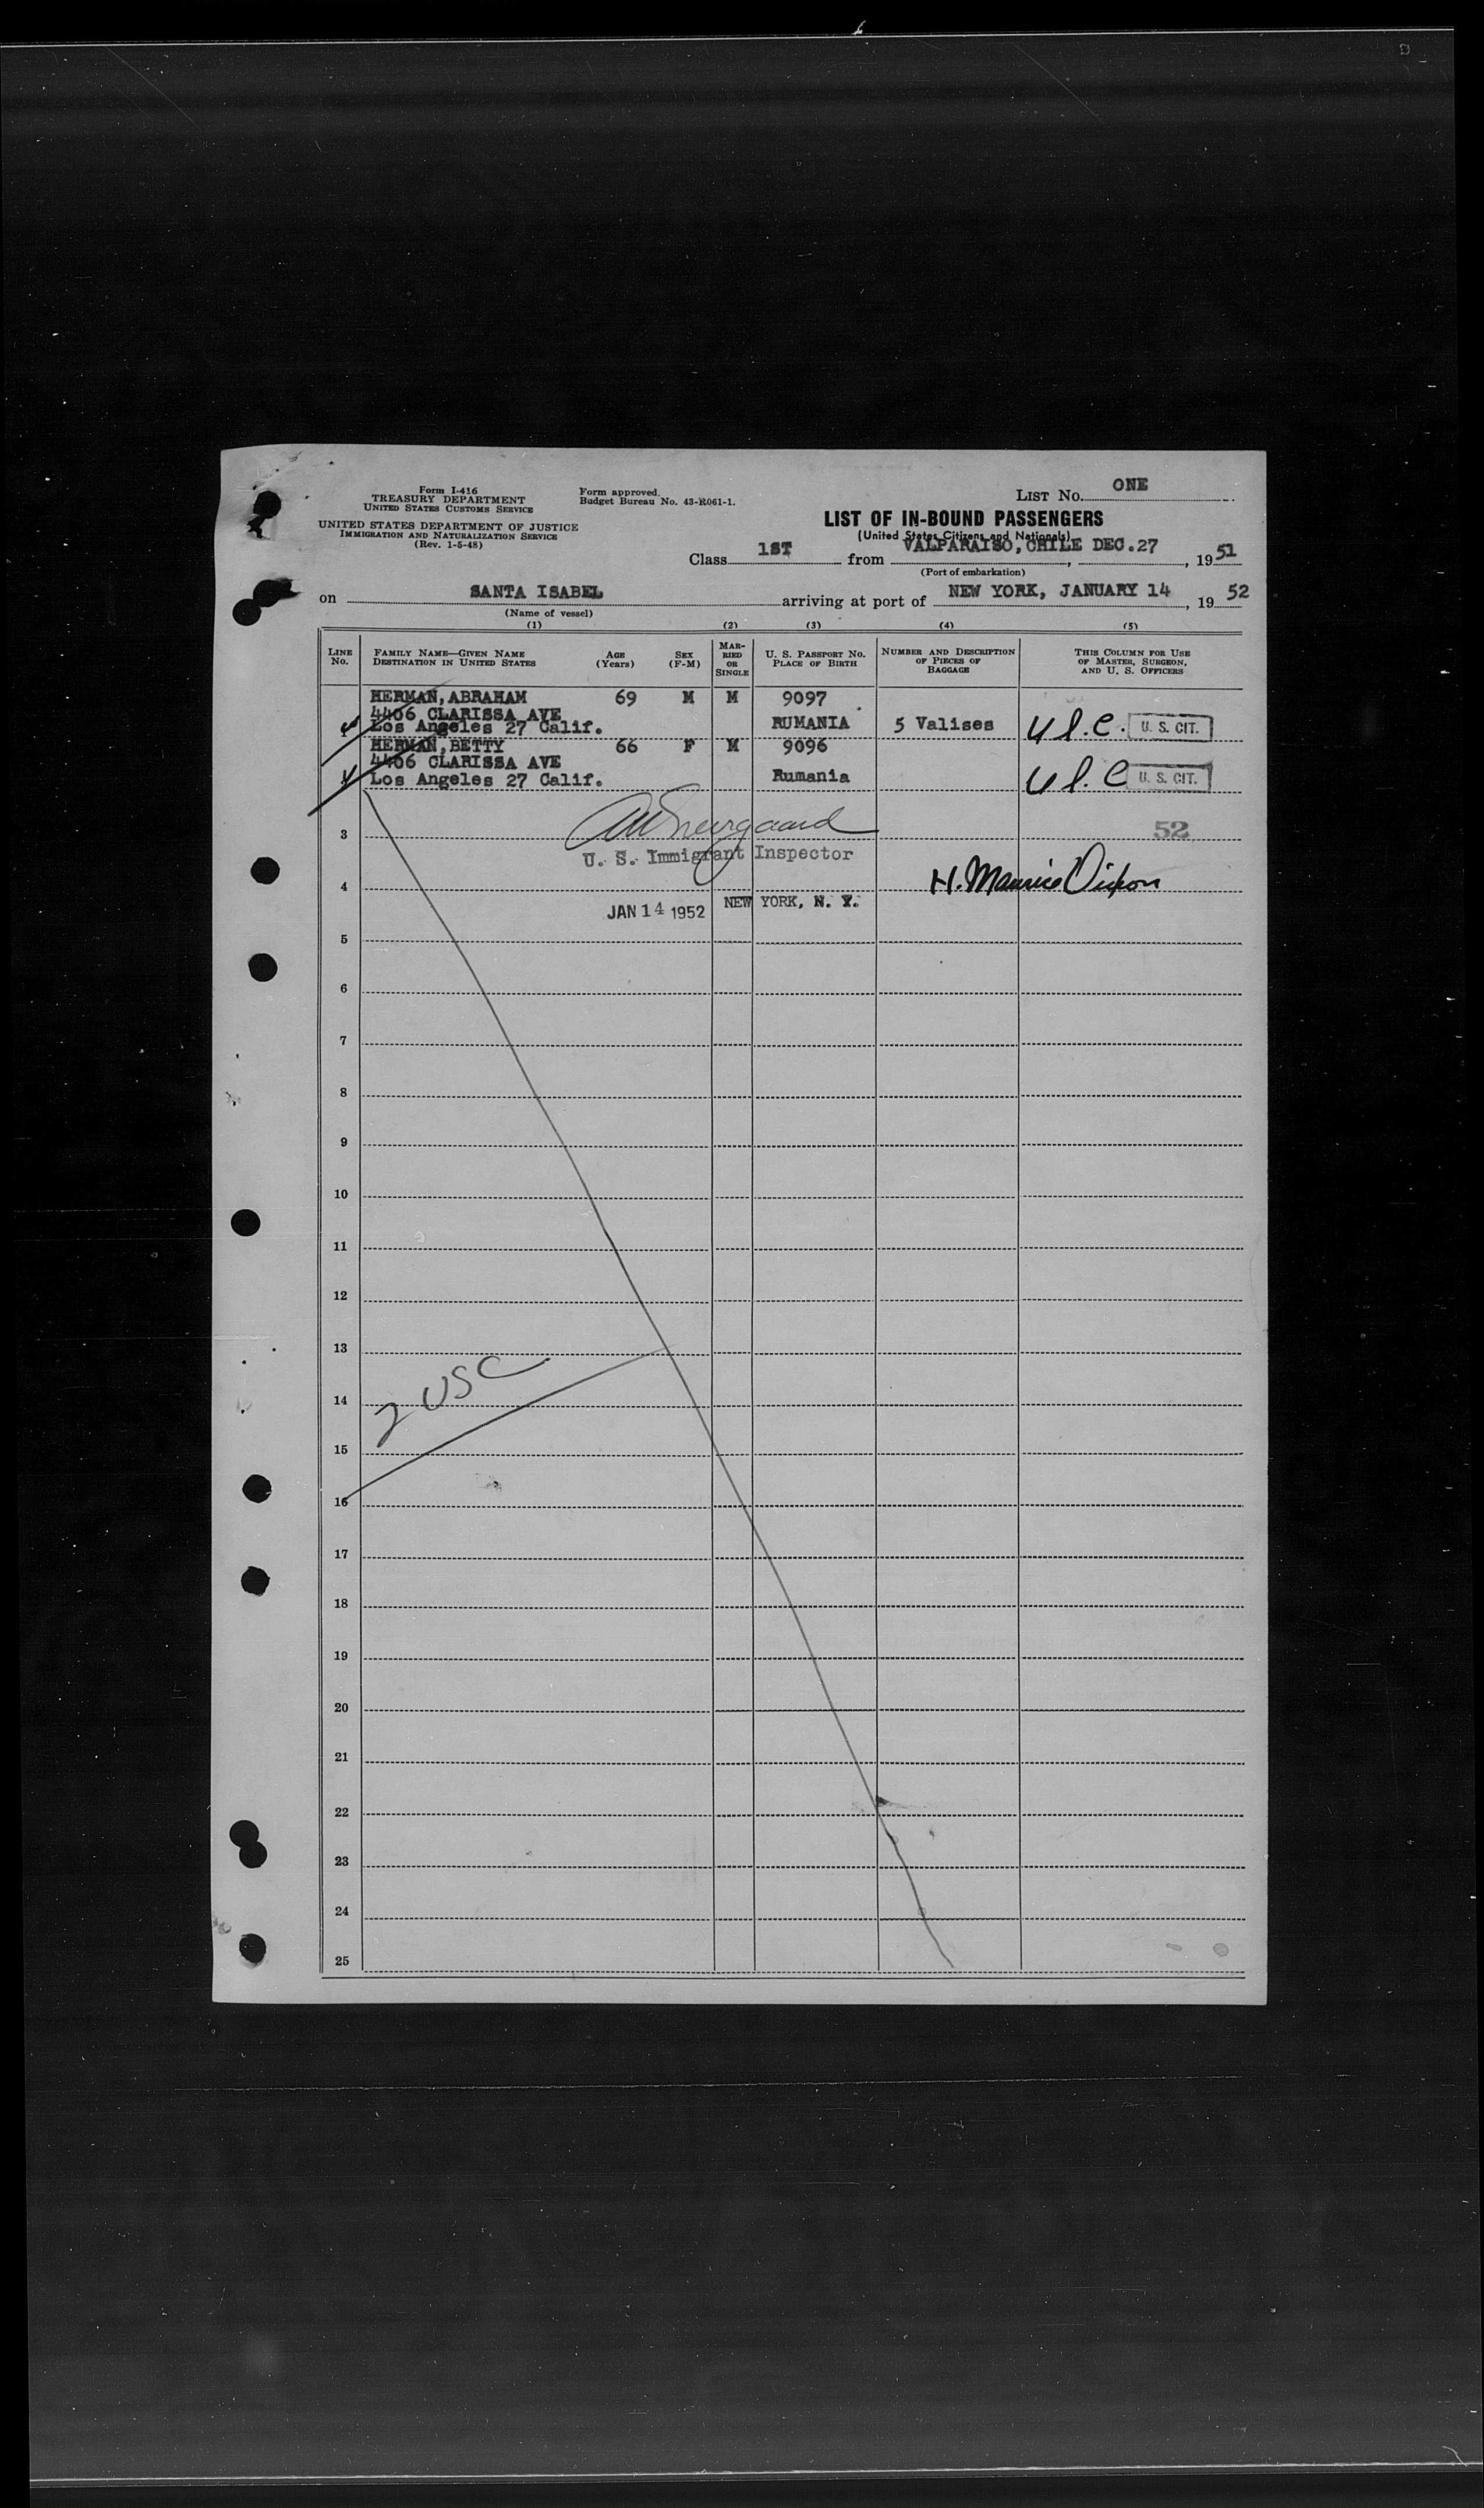 Form I-416
TREASURY DEPARTMENT
UNITED STATES CUSTOMS SERVICE
UNITED STATES DEPARTMENT OF JUSTICE
IMMIGRATION AND NATURALIZATION SERVICE
(Rev. 1-5-48)
Form approved.
Budget Bureau No. 43-R061-1.
LIST NO. ONE
LIST OF IN-BOUND PASSENGERS
(United States Citizens and Nationals)
Class 1ST from VALPARAISO, CHILE DEC.27, 1951
(Port of embarkation)
on SANTA ISABEL arriving at port of NEW YORK, JANUARY 14, 1952
(Name of vessel)
(1) (2) (3) (4) (5)
LINE No. FAMILY NAME—GIVEN NAME DESTINATION IN UNITED STATES AGE (Years) SEX (F-M) MARRIED OR SINGLE U. S. PASSPORT No. PLACE OF BIRTH NUMBER AND DESCRIPTION OF PIECES OF BAGGAGE THIS COLUMN FOR USE OF MASTER, SURGEON, AND U. S. OFFICERS
HERMAN, ABRAHAM 69 M M 9097
4406 CLARISSA AVE
Los Angeles 27 Calif. RUMANIA 5 Valises U.S.C. U. S. CIT.
HERMAN, BETTY 66 F M 9096
4406 CLARISSA AVE
Los Angeles 27 Calif. Rumania U.S.C U. S. CIT.
3 52
U. S. Immigrant Inspector
4 H. Maurice Dixon
JAN 14 1952 NEW YORK, N. Y.
5
6
7
8
9
10
11
12
13
2 USC
14
15
16
17
18
19
20
21
22
23
24
25